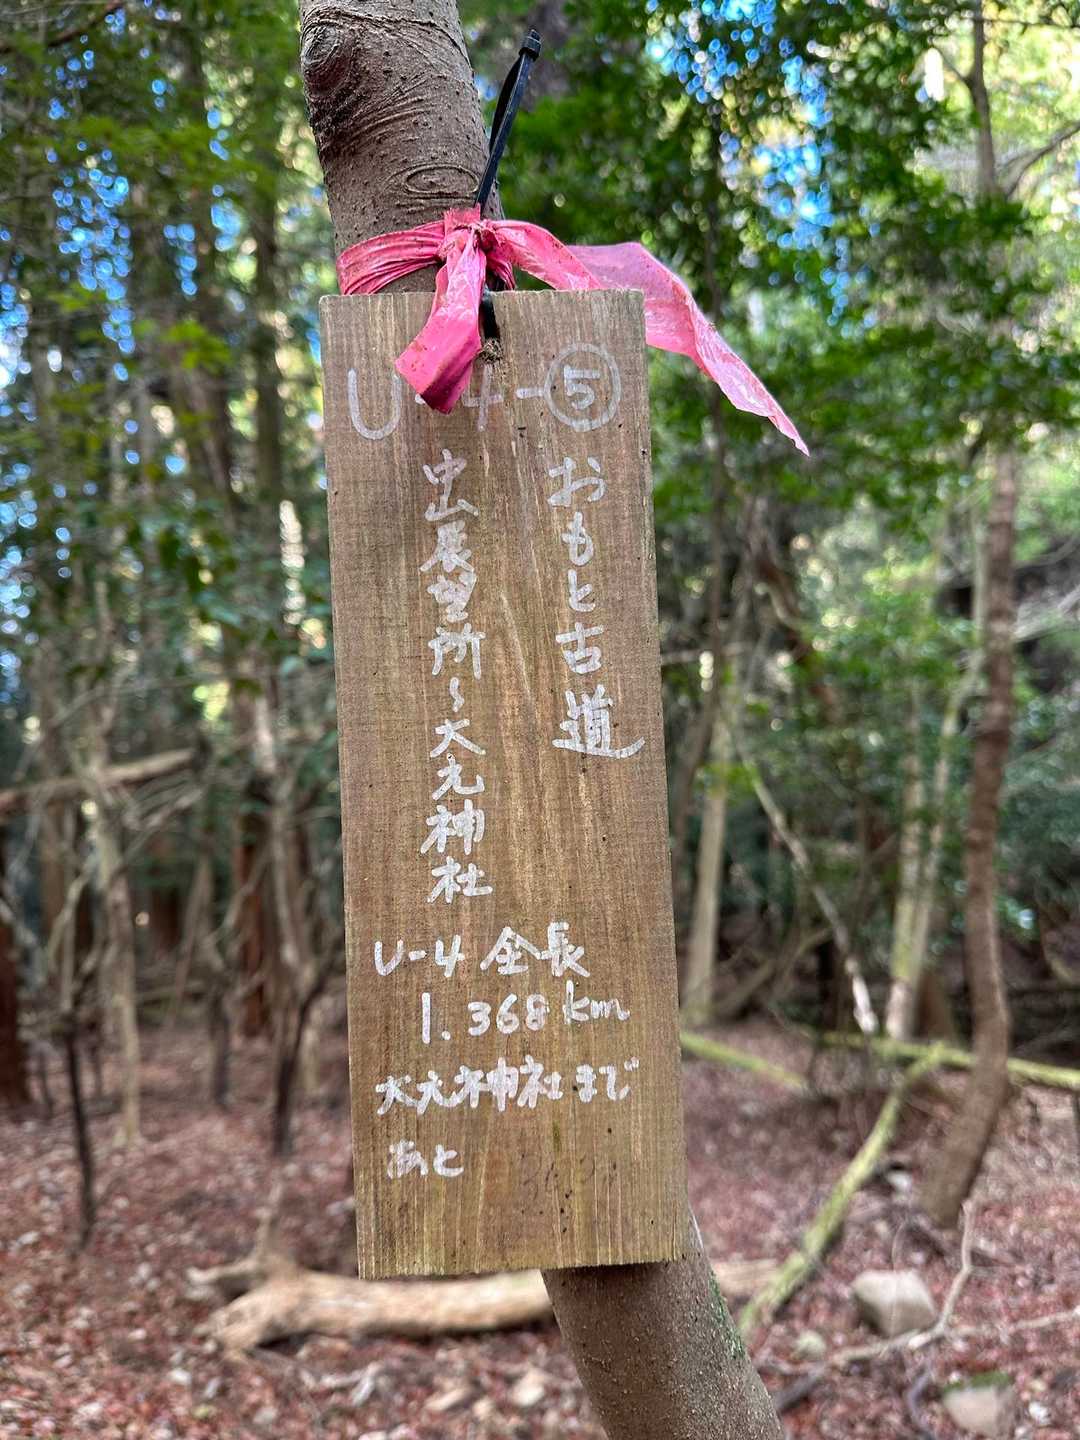 U-4-⑤
おもと古道
中山展望所~大元神社
U-4 全長
1.368km
大元神社まで
あと